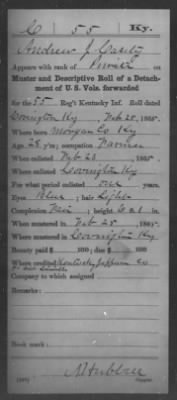 C 55 Ky.
Andrew J
Appears with rank of Private on
Muster and Descriptive Roll of a Detachment
of U. S. Vols. forwarded
for the 55 Reg't Kentucky Inf. Roll dated
Covington Ky, Feb 28, 1865.
Where born Morgan Co Ky
Age 28 y'rs; occupation Farmer
When enlisted Feb 28, 1865.
Where enlisted Covington Ky
For what period enlisted one years.
Eyes Blue; hair Light
Complexion Fair; height 6 ft in.
When mustered in Feb 28, 1865.
Where mustered in Covington Ky
Bounty paid $ 100; due $ 100
Where credited Kentucky Jefferson Co
Company to which assigned
Remarks:
Book mark:
Copyist.